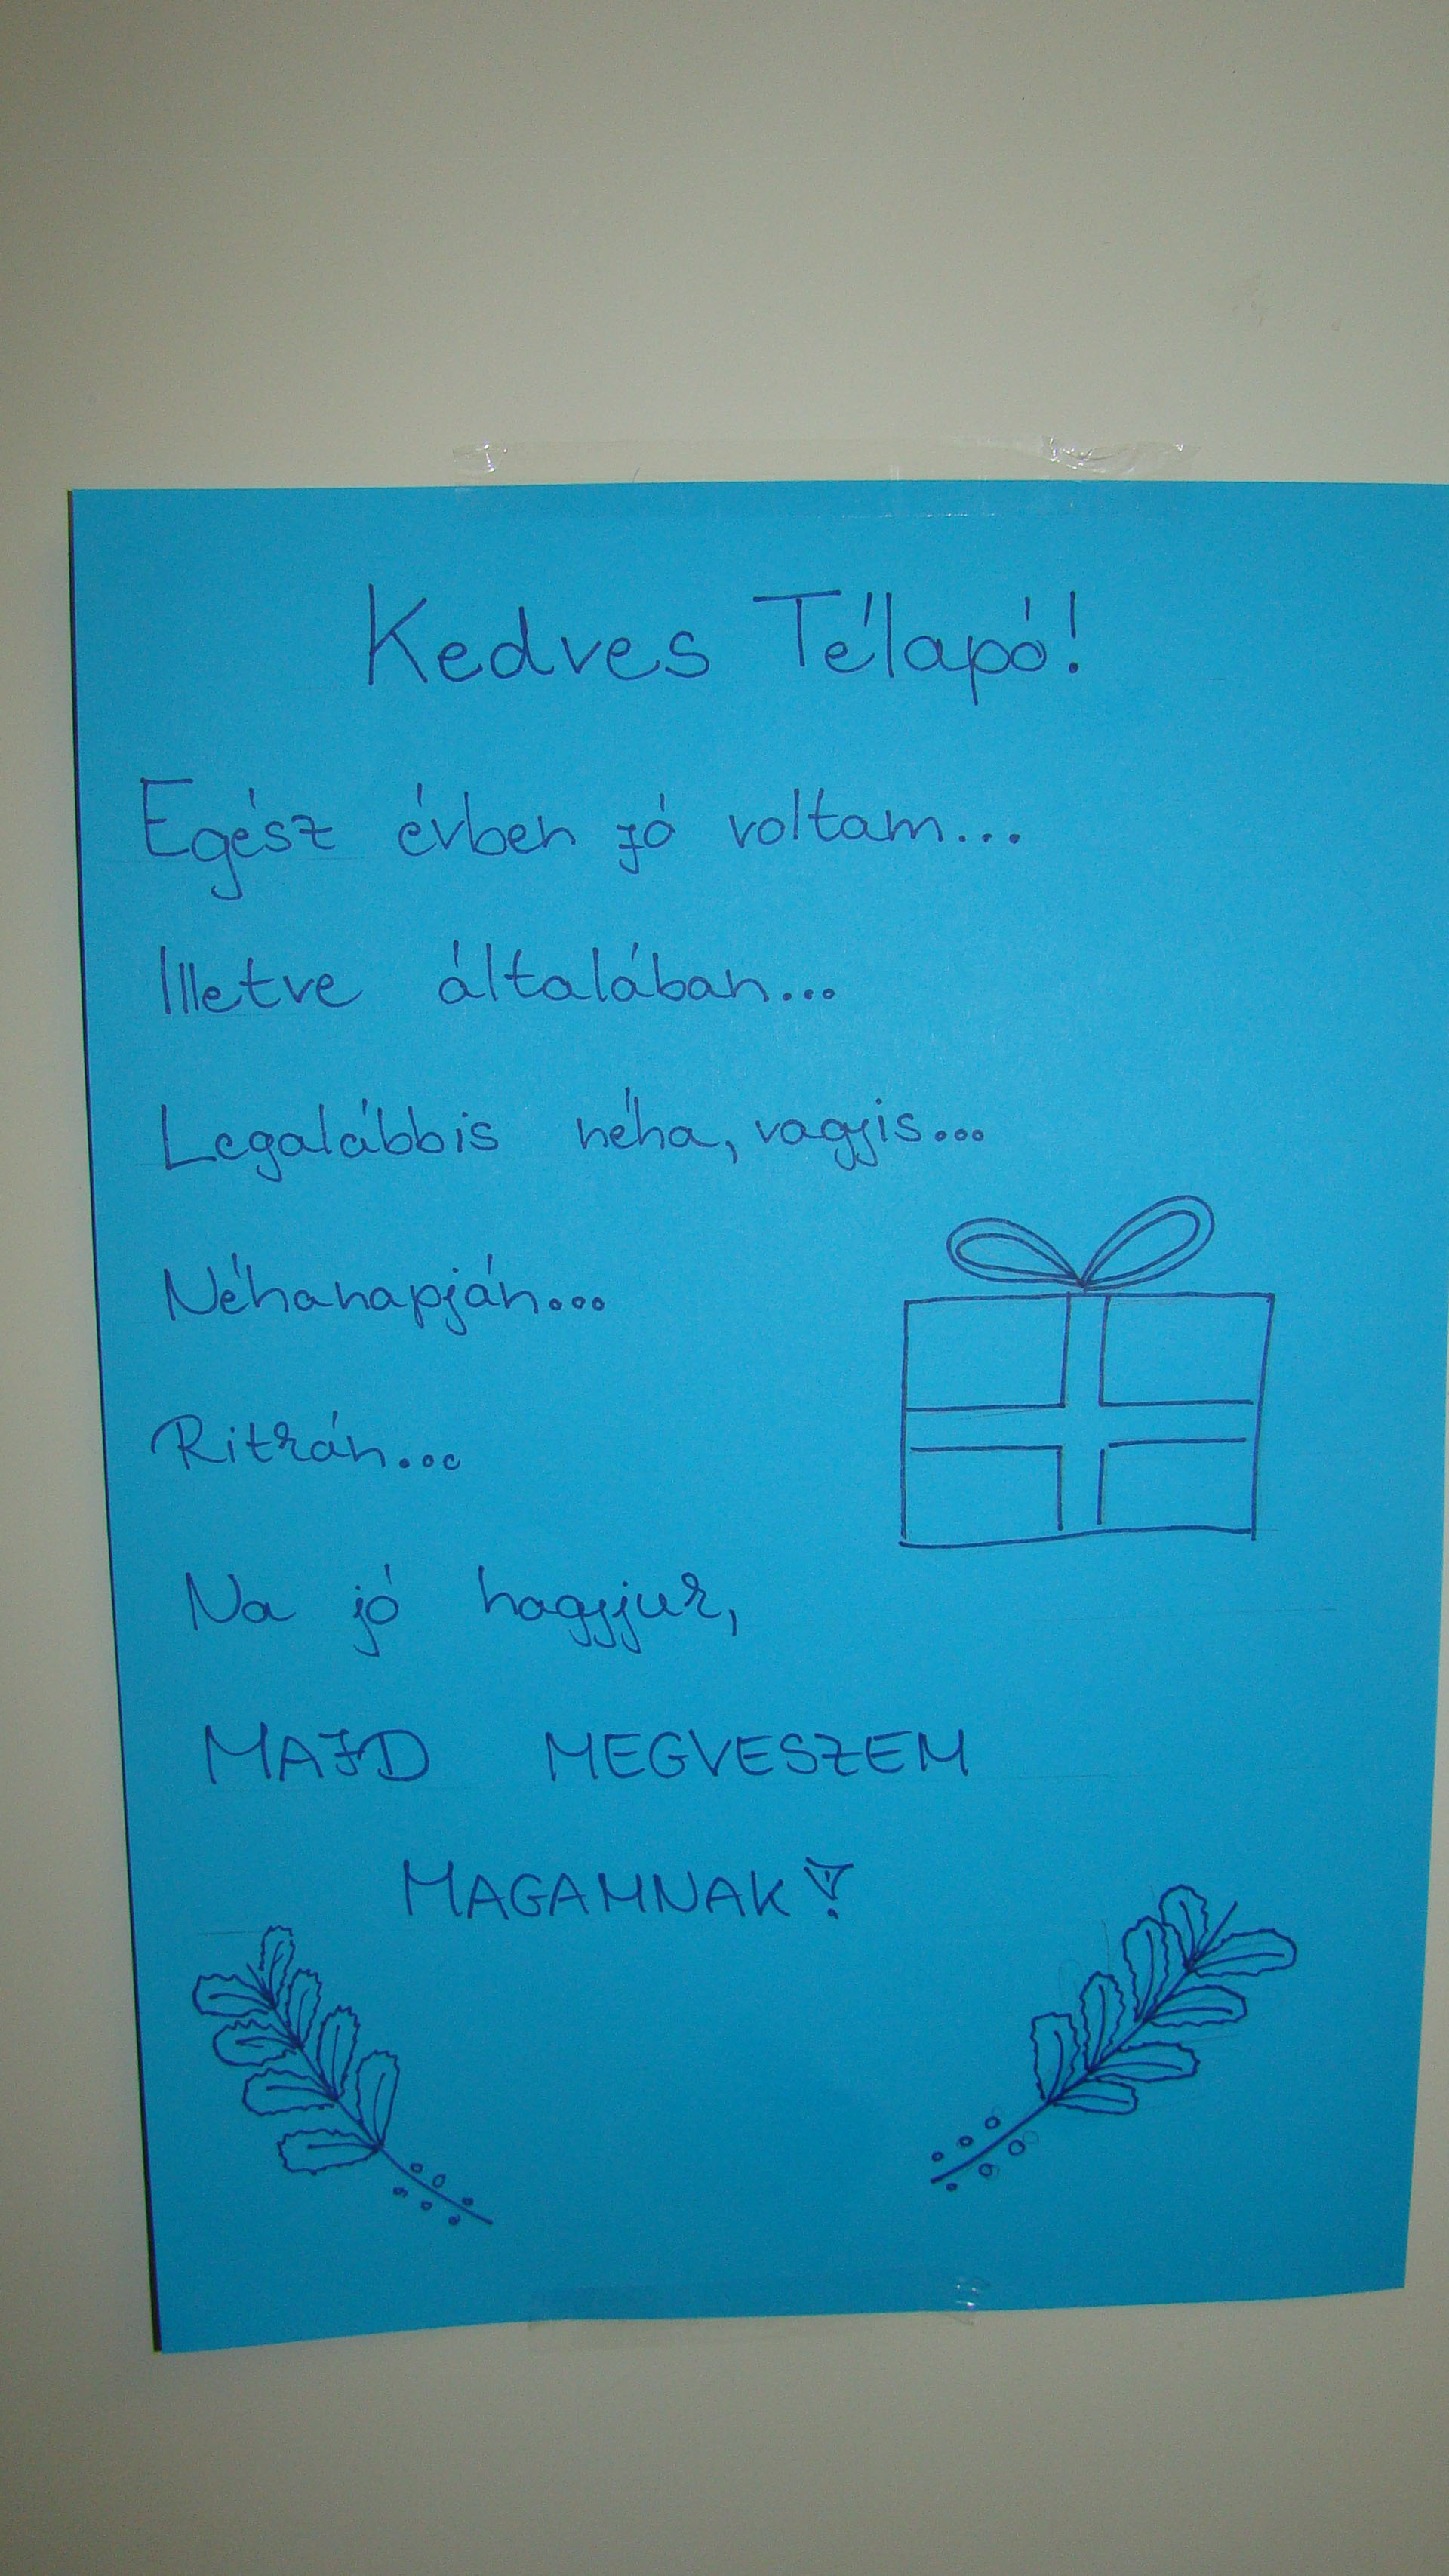 Kedves Télapó!
Egész évben jó voltam...
Illetve általában...
Legalábbis néha, vagyis...
Néhanapján...
Ritkán...
Na jó hagyjuk,
MAJD MEGVESZEM
MAGAMNAK!